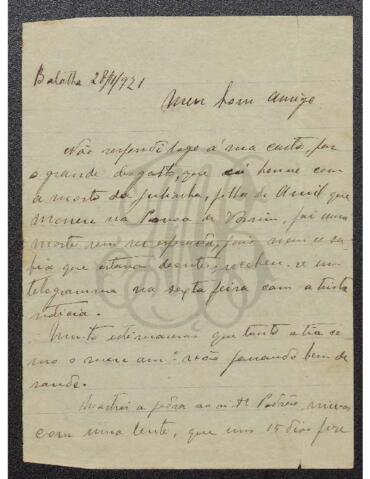 Batalha 28/1/921
Meu bom amigo
Não respondi logo á sua carta, por
o grande desgosto, que cá houve com
a morte da Julinha, filha do que
morreu na Povoa de Varzim, foi uma
morte sem ser esperada, pois nem se sa-
bia que estava doente, recebeu-se um
telegramma na sexta feira com a triste
noticia.
Muito estimamos que tanto a tia co-
mo o meu am.º vão passando bem de
saude.
Mostrei a pedra ao m.tº Padrão,
com uma lente, que uns 15 dias